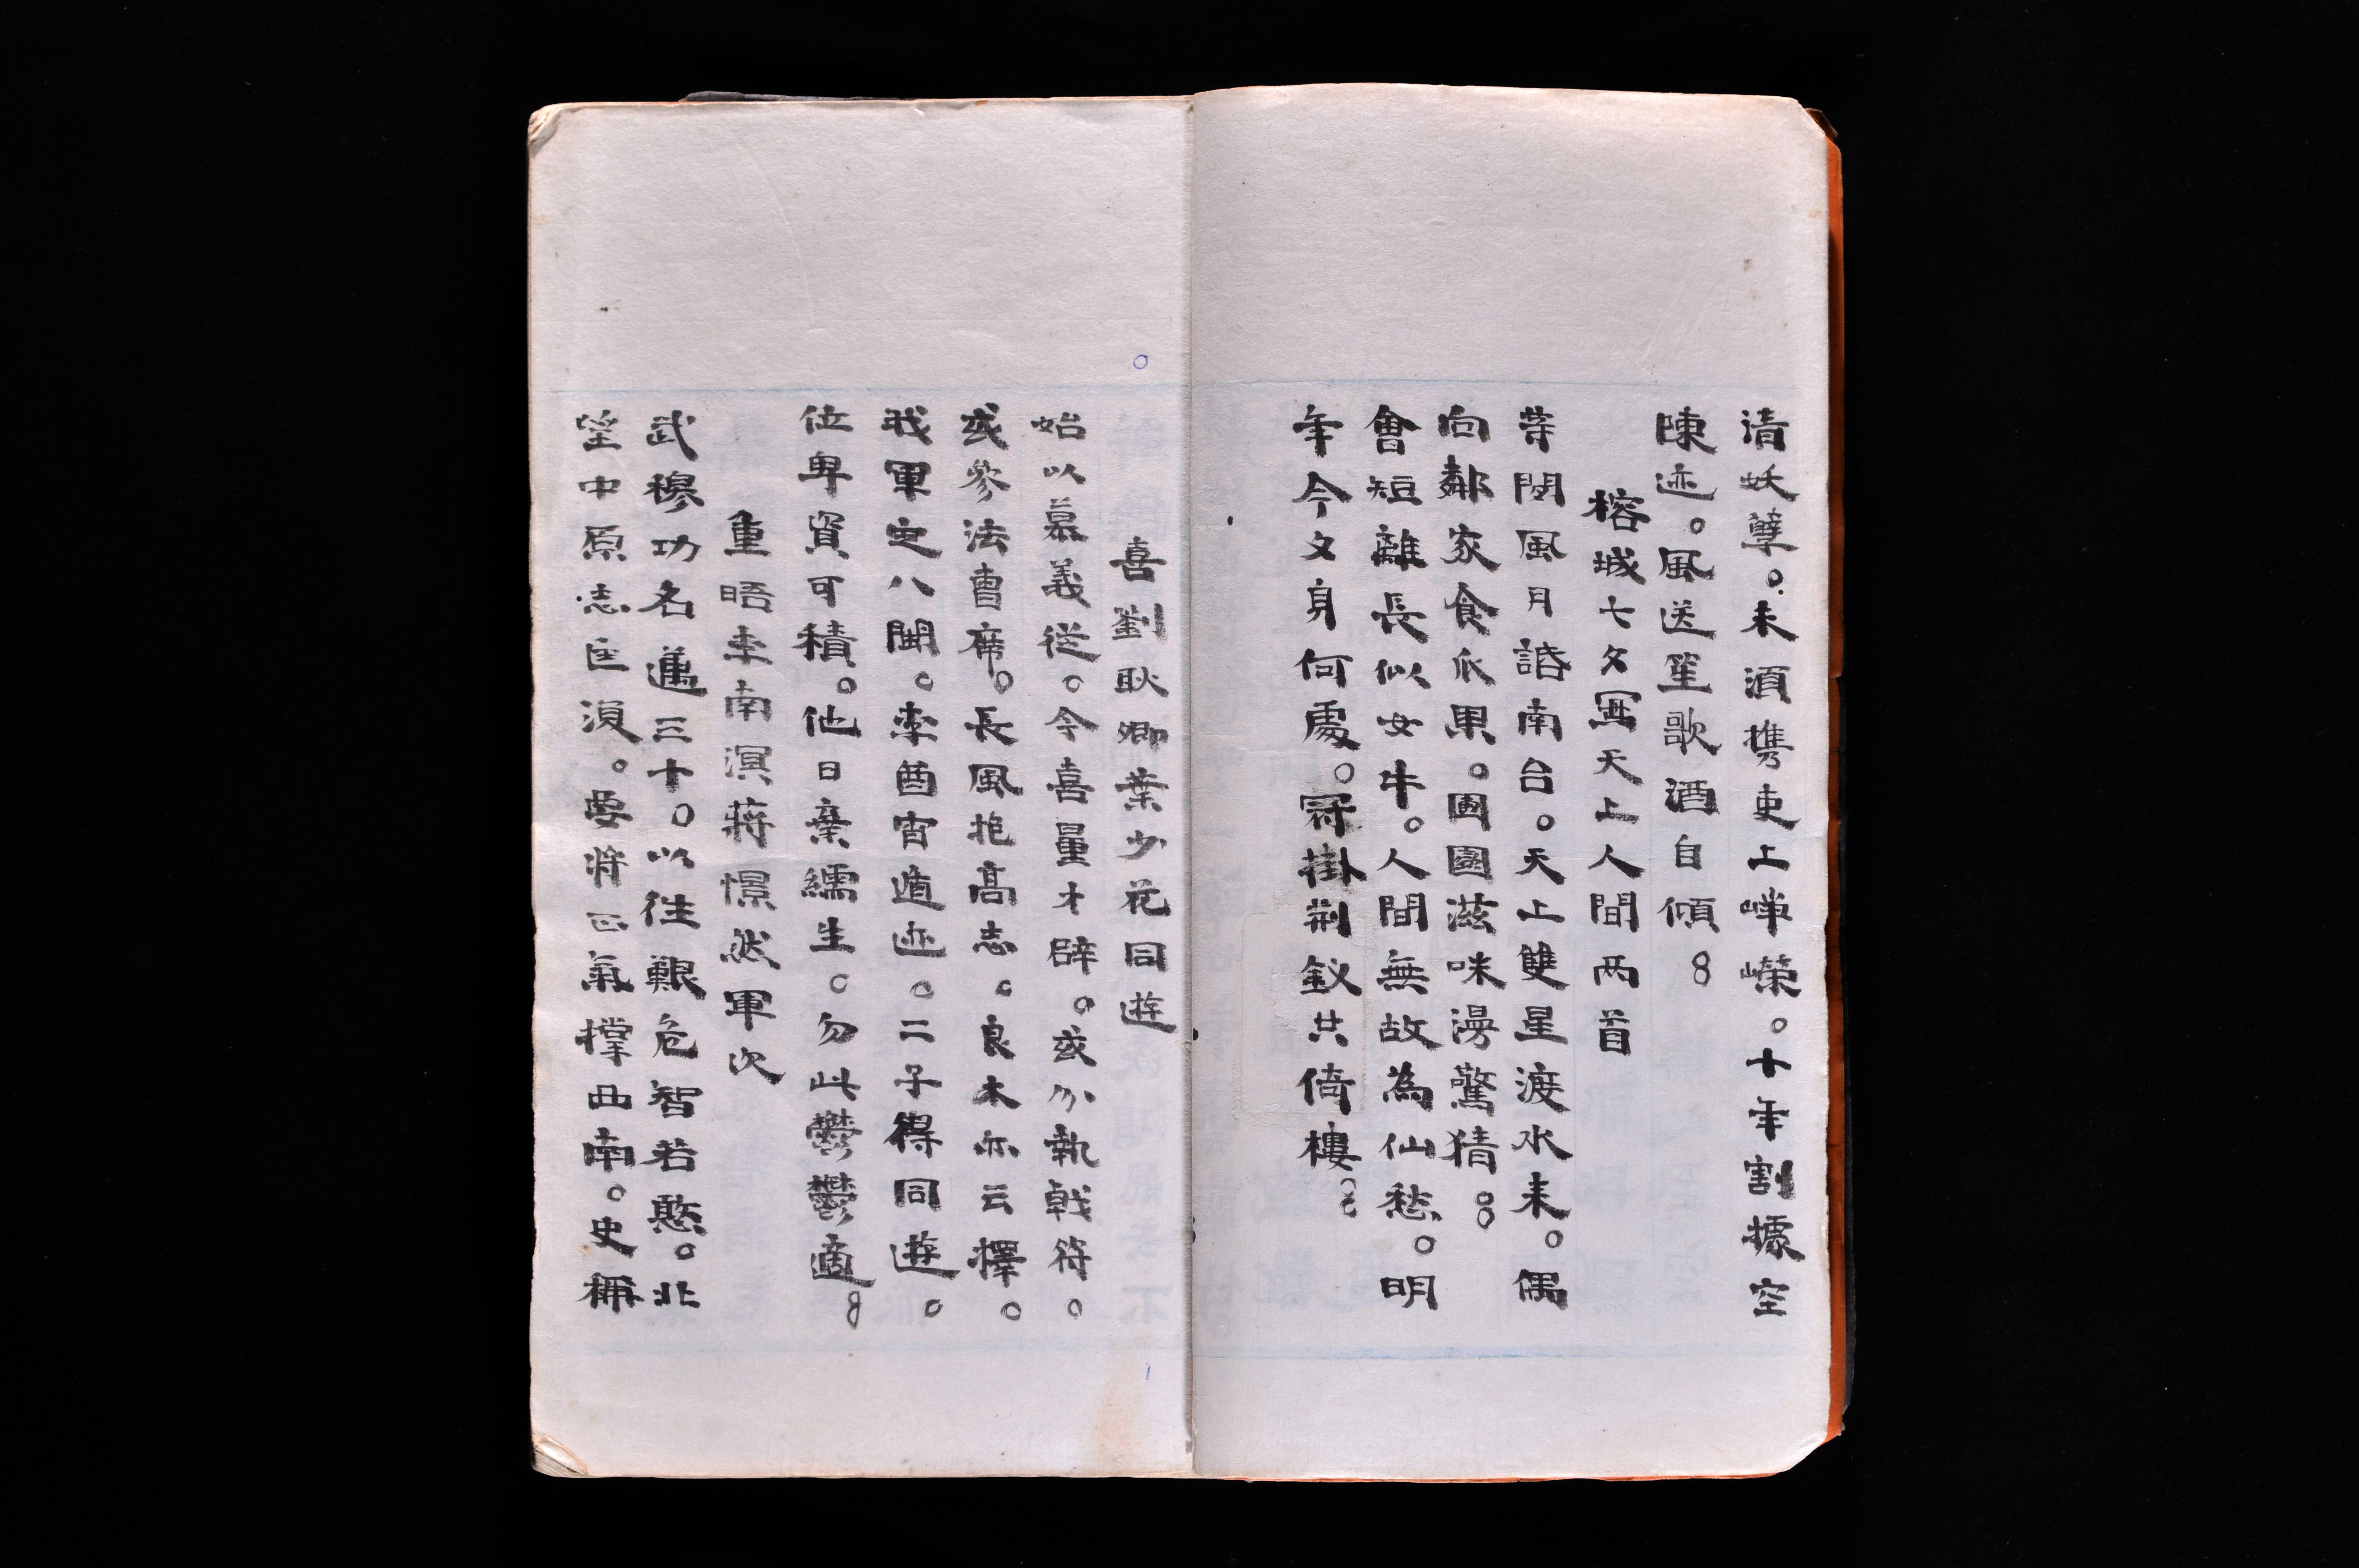 清妖孽。未須攜吏上崢嶸。十年割據空
陳迹。風送笙歌酒自傾。
榕城七夕寫天上人間两首
等閒風月話南台。天上雙星渡水来。偶
向鄰家食瓜果。團圞滋味漫驚猜。
會短離長似女牛。人間無故為仙愁。明
年今夕身何處。冠掛荊釵共倚樓。
喜劉耿卿葉少花同遊
始以慕義從。今喜量才辟。或分執戟符。
或參法曹席。長風抱高志。良木亦云擇。
我軍定八閩。李酋宵遁迹。二子得同遊。
位卑資可積。他日棄繻生。勿此鬱鬱適。
重晤李南溟蔣憬然軍次
武穆功名邁三十。以往艱危智若愍。北
望中原志匡復。要將正氣撑西南。史稱